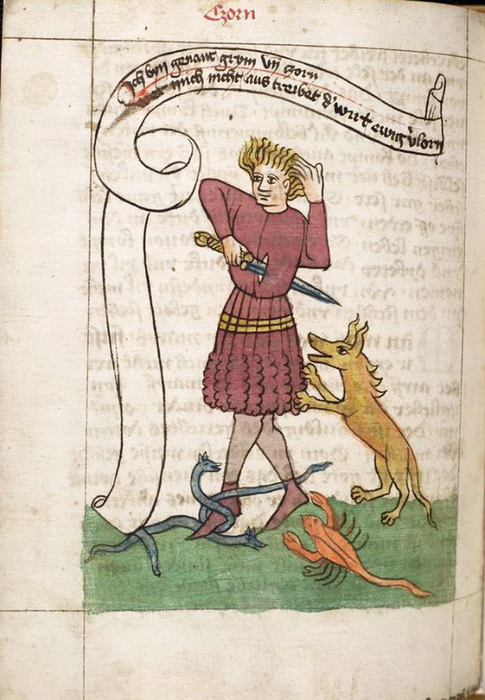 Czorn
Ich byn genant grym vn̄ zorn
mich nicht aus treibet d' wirt ewig v̓lorn